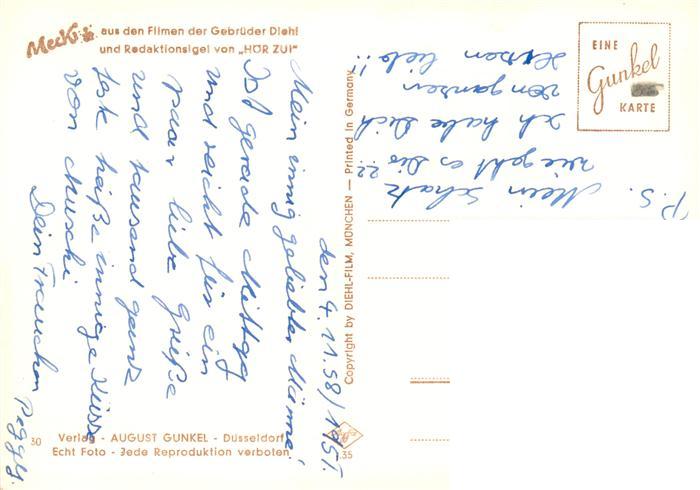 Mecki aus den Filmen der Gebrüder Diehl
und Redaktionsigel von „HÖR ZU!"
EINE
Gunkel
KARTE
den 4.11.58/1957.
Mein innig geliebter Männe!
Ist gerade Mittag
und reicht für ein
paar liebe Grüße
und tausend ganz
feste heiße innige Küsse
von Muschi
Dein Frauchen Peggy.
P.S. Mein Schatz
wie geht es Dir ???
Ich habe Dich
von ganzen
Herzen lieb!!
Copyright by DIEHL-FILM, MÜNCHEN — Printed in Germany
30 Verlag - AUGUST GUNKEL - Düsseldorf
Echt Foto - Jede Reproduktion verboten
.35